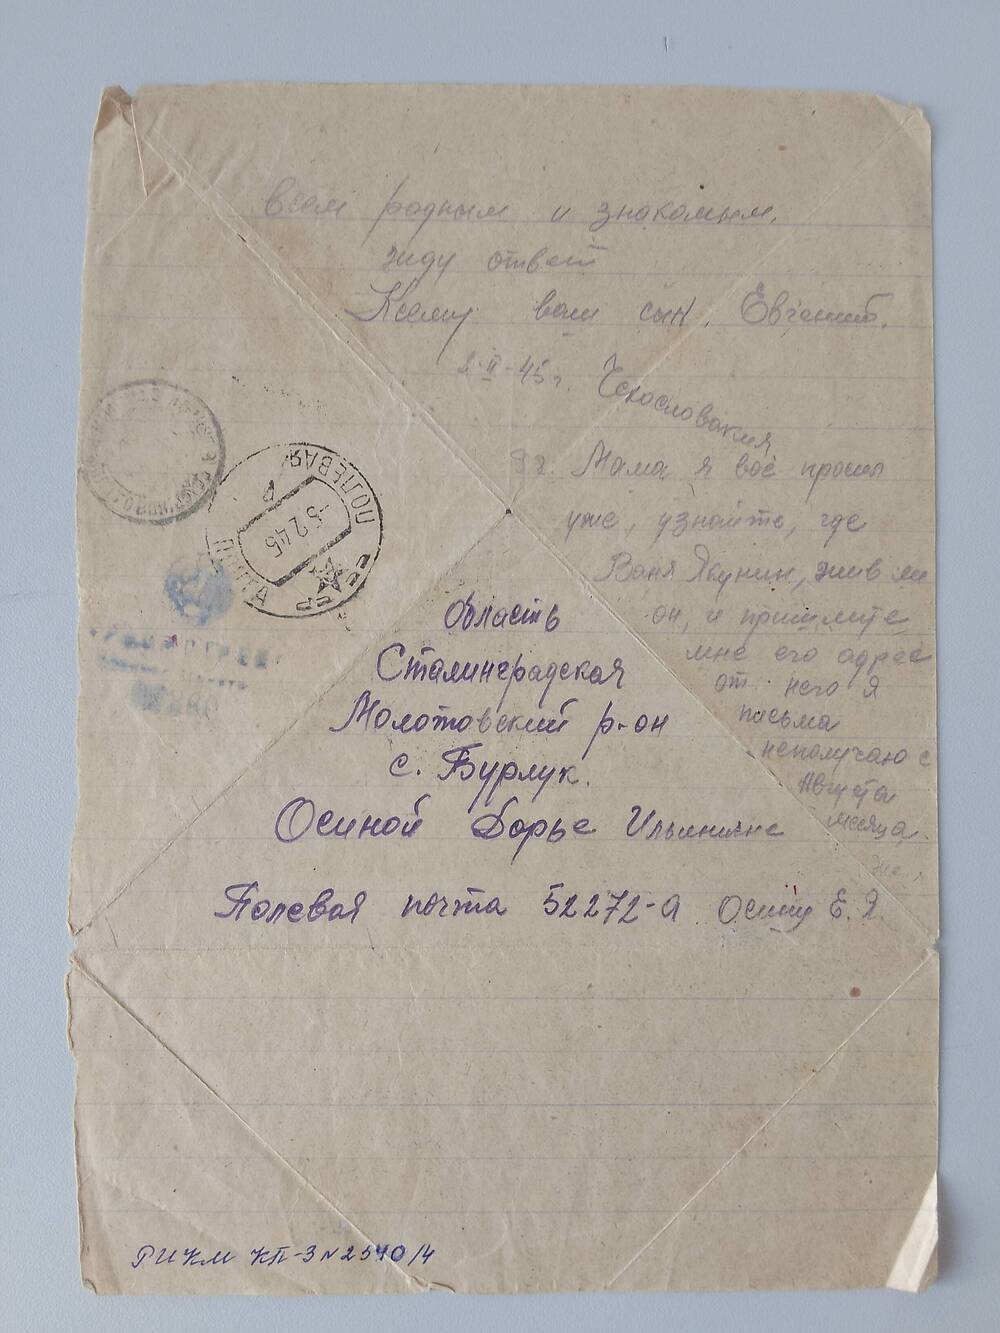 всем родным и знакомым.
жду ответ
К сему ваш сын. Евгений.
2-II-45 г. Чехословакия
Мама я вас просил
уже, узнайте, где
Ваня Якунин, жив ли
он, и пришлите
мне его адрес
от него я
письма
неполучаю с
Августа
месяца.
ПОЛЕВАЯ
-5 2 45
ПОЧТА
СССР
Область
Сталинградская
Молотовский р-он
с. Бурлук.
Осиной Дорье Ильинични
Полевая почта 52272-а Осину Е. Я.
РИКМ КП-3 N 2540/4